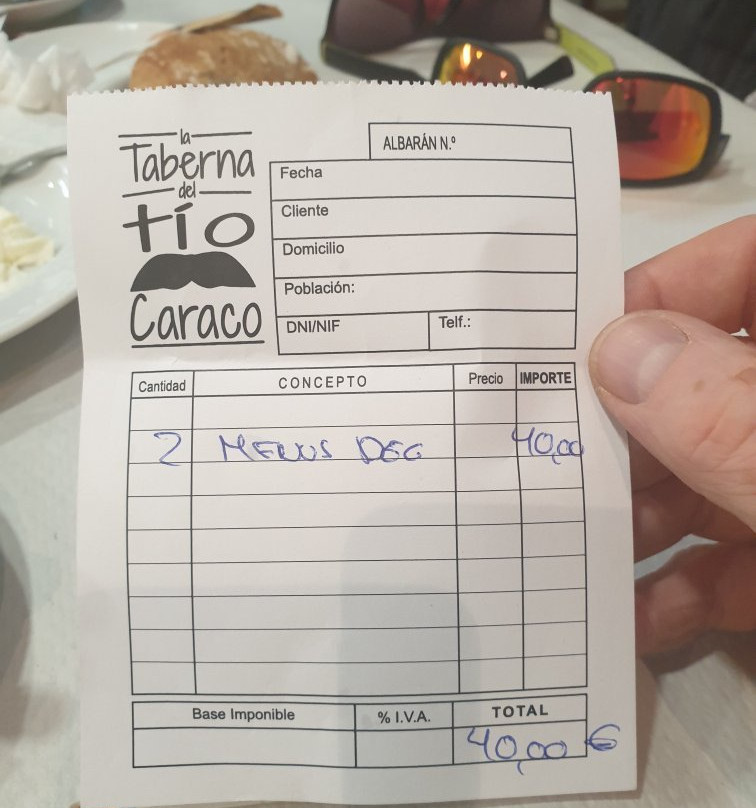 la
Taberna
del
tío
Caraco
ALBARÁN N.º
Fecha
Cliente
Domicilio
Población:
DNI/NIF Telf.:
Cantidad CONCEPTO Precio IMPORTE
2 MENUS DEG 40,00
Base Imponible % I.V.A. TOTAL
40,00 €